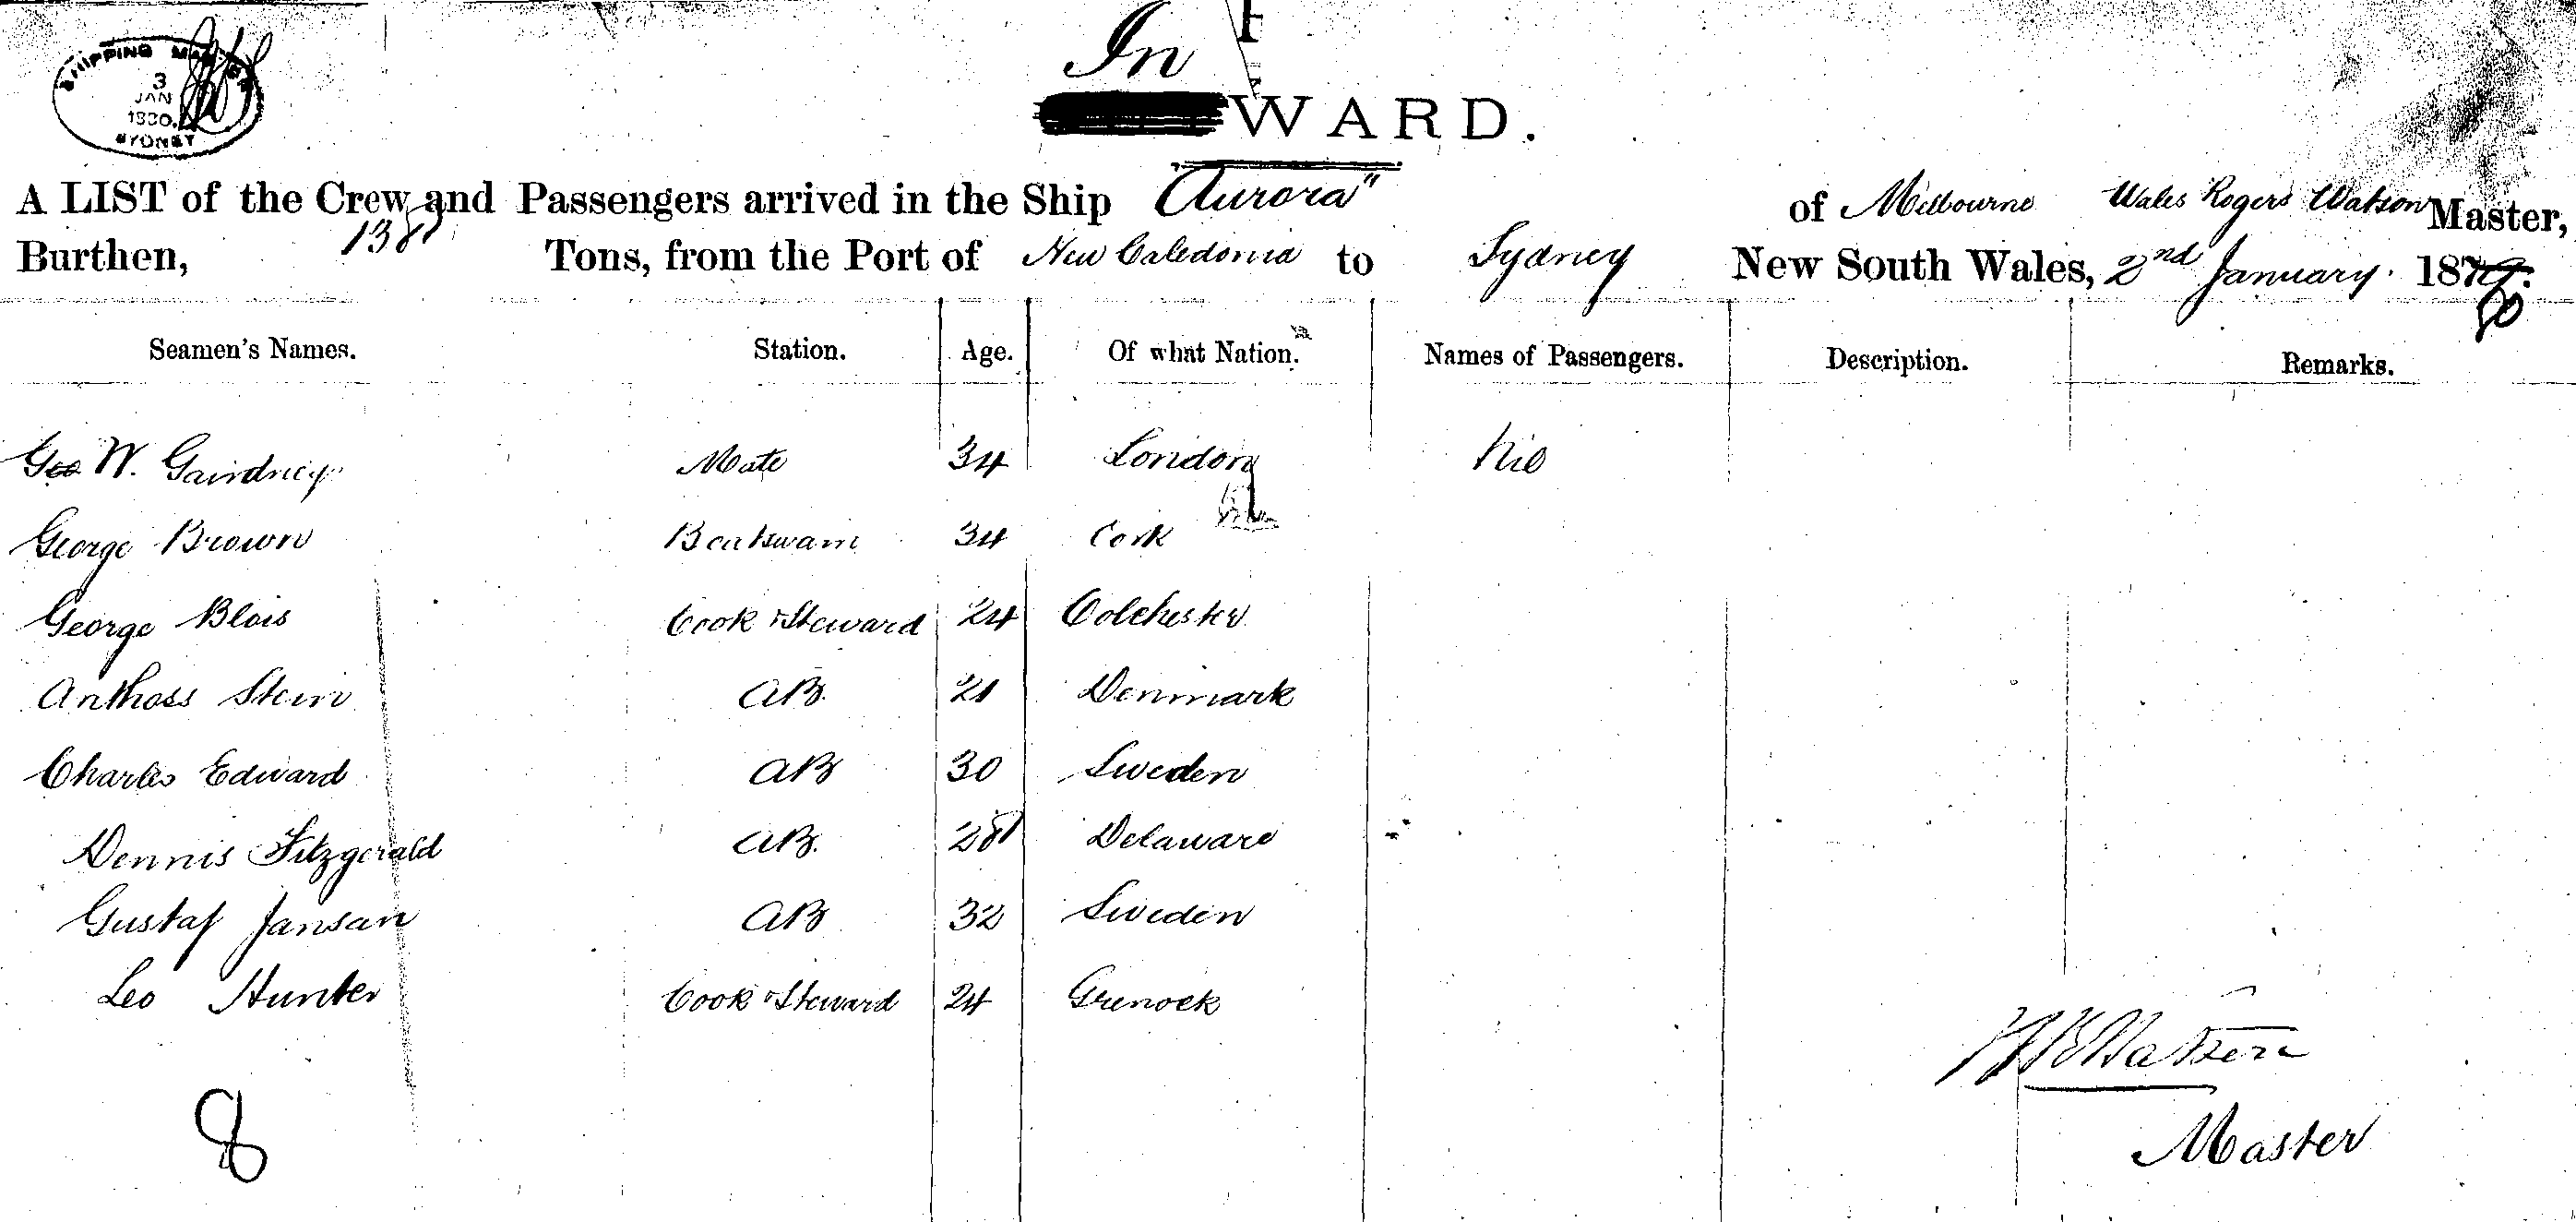 SHIPPING MASTER
3
JAN
1880.
SYDNEY
In
WARD.
A LIST of the Crew and Passengers arrived in the Ship "Aurora" of Melbourne Wales Rogers Watson Master,
Burthen, 138 Tons, from the Port of New Caledonia to Sydney New South Wales, 2nd January. 1880
Seamen's Names. Station. Age. Of what Nation. Names of Passengers. Description. Remarks.
Geo W. Gairdney Mate 34 London Nil
George Brown Boatswain 34 Cork
George Blois Cook & Steward 24 Colchester
Anthoss Stein AB. 21 Denmark
Charles Edward AB 30 Sweden
Dennis Fitzgerald AB. 28 Delaware
Gustaf Jansan AB 32 Sweden
Leo Hunter Cook & Steward 24 Grenock
Watson
8
Master